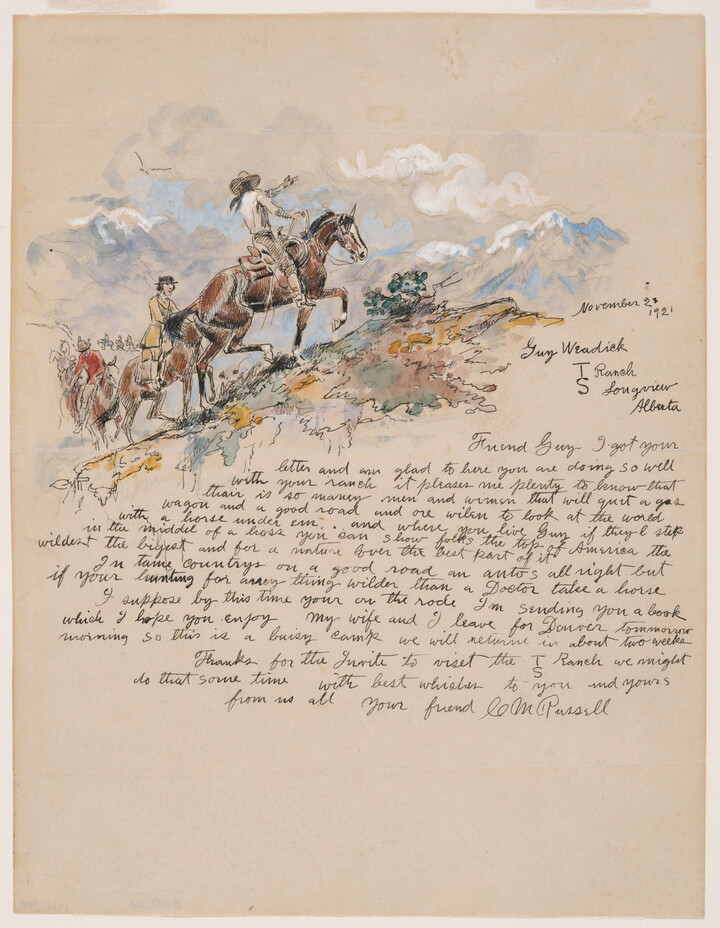 November 23
1921
Guy Weadick
T Ranch
S Longview
Alberta
Friend Guy I got your
letter and am glad to here you are doing so well
with your ranch it pleases me plenty to know that
thair is so maney men and wimen that will quit a gas
wagon and a good road and are wilen to look at the world
with a horse under em. and where you live Guy if they'l step
in the middel of a hoss you can show folks the top of America the
wildest the bigest and for a nature lover the best part of it
In tame countrys on a good road an autos all right but
if your hunting for aney thing wilder than a Doctor take a horse
I suppose by this time your on the rode I'm sending you a book
which I hope you enjoy My wife and I leave for Denver tommorow
morning so this is a buisy camp we will return in about two weeks
Thanks for the Invite to viset the T Ranch we might
S
do that some time with best whishes to you and yours
from us all your friend C M Russell
CMR